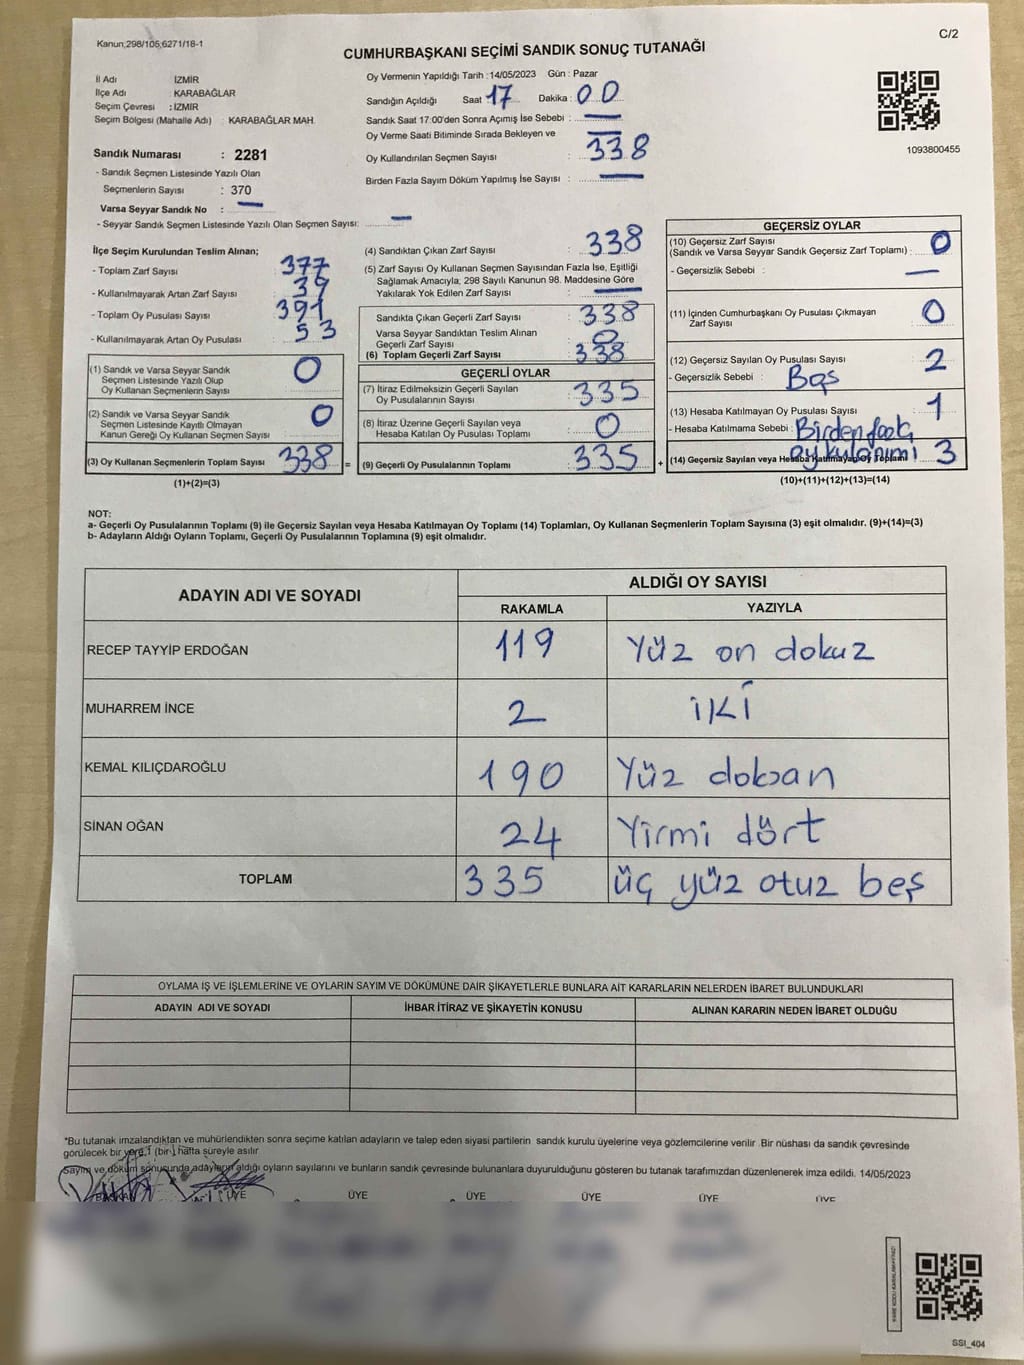 Kanun;298/105;6271/18-1
C/2
CUMHURBAŞKANI SEÇİMİ SANDIK SONUÇ TUTANAĞI
İl Adı İZMİR
İlçe Adı : KARABAĞLAR
Seçim Çevresi : İZMİR
Seçim Bölgesi (Mahalle Adı) : KARABAĞLAR MAH.
Sandık Numarası : 2281
- Sandık Seçmen Listesinde Yazılı Olan
Seçmenlerin Sayısı : 370
Varsa Seyyar Sandık No : —
- Seyyar Sandık Seçmen Listesinde Yazılı Olan Seçmen Sayısı: —
Oy Vermenin Yapıldığı Tarih : 14/05/2023 Gün : Pazar
Sandığın Açıldığı Saat : 17 Dakika : 00
Sandık Saat 17:00'den Sonra Açımış İse Sebebi : —
Oy Verme Saati Bitiminde Sırada Bekleyen ve —
Oy Kullandırılan Seçmen Sayısı : 338
Birden Fazla Sayım Döküm Yapılmış İse Sayısı : —
1093800455
İlçe Seçim Kurulundan Teslim Alınan;
- Toplam Zarf Sayısı 377
- Kullanılmayarak Artan Zarf Sayısı 39
- Toplam Oy Pusulası Sayısı 391
- Kullanılmayarak Artan Oy Pusulası 53
(1) Sandık ve Varsa Seyyar Sandık 0
Seçmen Listesinde Yazılı Olup
Oy Kullanan Seçmenlerin Sayısı
(2) Sandık ve Varsa Seyyar Sandık 0
Seçmen Listesinde Kayıtlı Olmayan
Kanun Gereği Oy Kullanan Seçmen Sayısı
(3) Oy Kullanan Seçmenlerin Toplam Sayısı 338 =
(1)+(2)=(3)
(4) Sandıktan Çıkan Zarf Sayısı : 338
(5) Zarf Sayısı Oy Kullanan Seçmen Sayısından Fazla İse, Eşitliği
Sağlamak Amacıyla, 298 Sayılı Kanunun 98. Maddesine Göre
Yakılarak Yok Edilen Zarf Sayısı : —
Sandıkta Çıkan Geçerli Zarf Sayısı : 338
Varsa Seyyar Sandıktan Teslim Alınan
Geçerli Zarf Sayısı : 0
(6) Toplam Geçerli Zarf Sayısı : 338
GEÇERLİ OYLAR
(7) İtiraz Edilmeksizin Geçerli Sayılan
Oy Pusulalarının Sayısı : 335
(8) İtiraz Üzerine Geçerli Sayılan veya
Hesaba Katılan Oy Pusulası Toplamı : 0
(9) Geçerli Oy Pusulalarının Toplamı : 335 +
GEÇERSİZ OYLAR
(10) Geçersiz Zarf Sayısı
(Sandık ve Varsa Seyyar Sandık Geçersiz Zarf Toplamı) : 0
- Geçersizlik Sebebi : —
(11) İçinden Cumhurbaşkanı Oy Pusulası Çıkmayan
Zarf Sayısı 0
(12) Geçersiz Sayılan Oy Pusulası Sayısı 2
- Geçersizlik Sebebi : Boş
(13) Hesaba Katılmayan Oy Pusulası Sayısı 1
- Hesaba Katılmama Sebebi : Birden fazla
oy kulanımı
(14) Geçersiz Sayılan veya Hesaba Katılmayan Oy Toplamı 3
(10)+(11)+(12)+(13)=(14)
NOT:
a- Geçerli Oy Pusulalarının Toplamı (9) ile Geçersiz Sayılan veya Hesaba Katılmayan Oy Toplamı (14) Toplamları, Oy Kullanan Seçmenlerin Toplam Sayısına (3) eşit olmalıdır. (9)+(14)=(3)
b- Adayların Aldığı Oyların Toplamı, Geçerli Oy Pusulalarının Toplamına (9) eşit olmalıdır.
ADAYIN ADI VE SOYADI
ALDIĞI OY SAYISI
RAKAMLA YAZIYLA
RECEP TAYYİP ERDOĞAN 119 Yüz on dokuz
MUHARREM İNCE 2 iki
KEMAL KILIÇDAROĞLU 190 Yüz doksan
SİNAN OĞAN 24 Yirmi dört
TOPLAM 335 üç yüz otuz beş
OYLAMA İŞ VE İŞLEMLERİNE VE OYLARIN SAYIM VE DÖKÜMÜNE DAİR ŞİKAYETLERLE BUNLARA AİT KARARLARIN NELERDEN İBARET BULUNDUKLARI
ADAYIN ADI VE SOYADI İHBAR İTİRAZ VE ŞİKAYETİN KONUSU ALINAN KARARIN NEDEN İBARET OLDUĞU
*Bu tutanak imzalandıktan ve mühürlendikten sonra seçime katılan adayların ve talep eden siyasi partilerin sandık kurulu üyelerine veya gözlemcilerine verilir .Bir nüshası da sandık çevresinde
görülecek bir yere 1 (bir ) hafta süreyle asılır
Sayım ve döküm sonucunda adayların aldığı oyların sayılarını ve bunların sandık çevresinde bulunanlara duyurulduğunu gösteren bu tutanak tarafımızdan düzenlenerek imza edildi. 14/05/2023
BAŞKAN ÜYE ÜYE ÜYE ÜYE ÜYE ÜYE
SSI_404